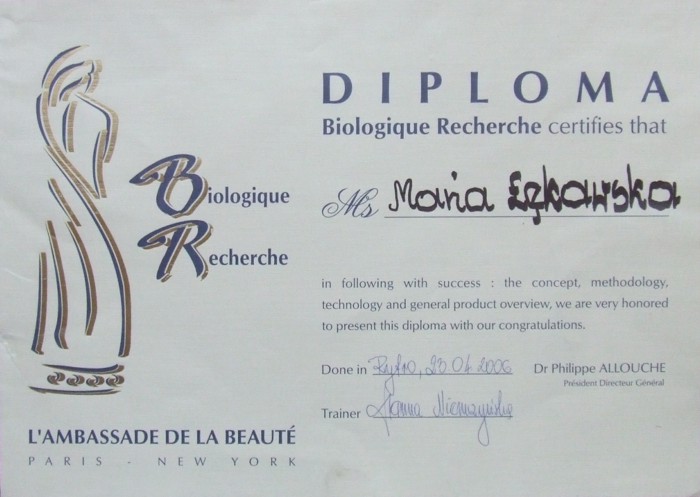 Biologique
Recherche
L'AMBASSADE DE LA BEAUTÉ
PARIS - NEW YORK
DIPLOMA
Biologique Recherche certifies that
Ms Maria Łękawska
in following with success : the concept, methodology,
technology and general product overview, we are very honored
to present this diploma with our congratulations.
Done in Rytro, 23.04.2006 Dr Philippe ALLOUCHE
Président Directeur Général
Trainer